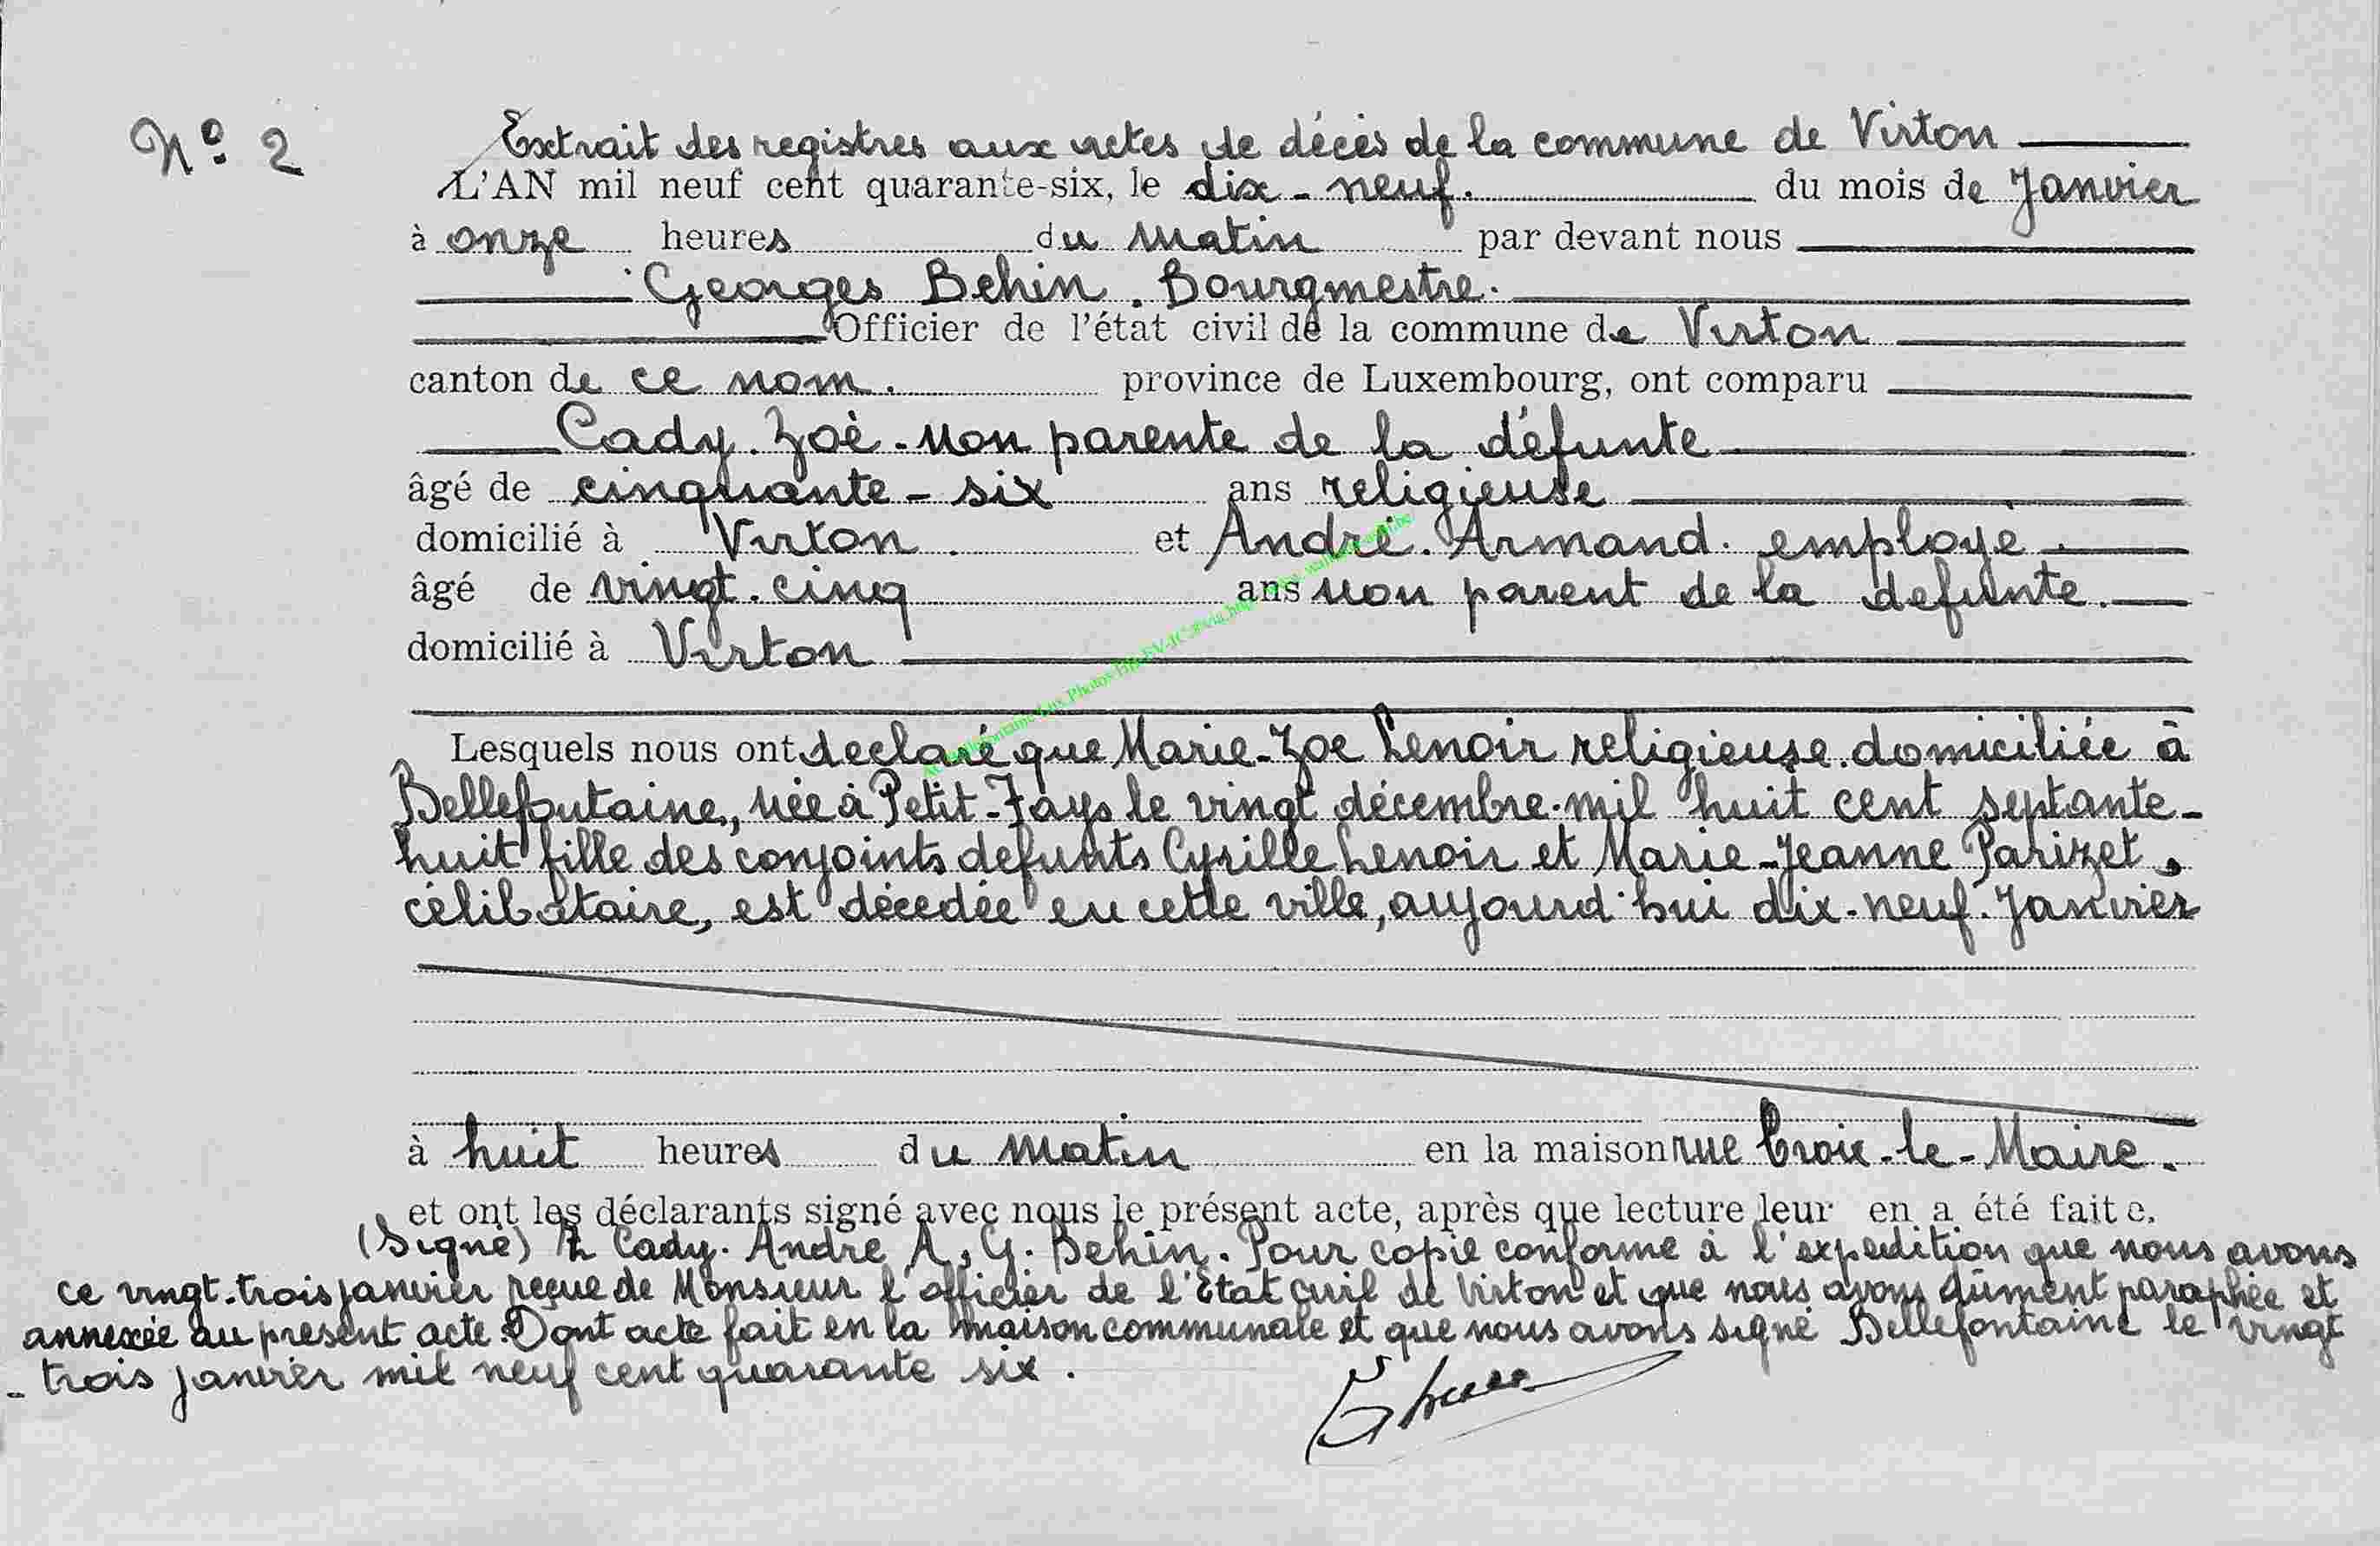 N° 2
Extrait des registres aux actes de décès de la commune de Virton
L'AN mil neuf cent quarante-six, le dix-neuf. du mois de Janvier
à onze heures du matin par devant nous
Georges Behin. Bourgmestre.
Officier de l'état civil de la commune de Virton
canton de ce nom. province de Luxembourg, ont comparu
Cady. Zoé. non parente de la défunte
âgé de cinquante-six ans religieuse
domicilié à Virton. et André. Armand. employé.
âgé de vingt-cinq ans non parent de la defunte.
domicilié à Virton
Lesquels nous ont declaré que Marie-Zoe Lenoir religieuse. domiciliée à
Bellefontaine, née à Petit-Fays le vingt décembre mil huit cent septante-
huit fille des conjoints defunts Cyrille Lenoir et Marie-Jeanne Parizet,
célibataire, est décédée en cette ville, aujourd'hui dix-neuf. Janvier
à huit heures du matin en la maison rue Croix-le-Maire.
et ont les déclarants signé avec nous le présent acte, après que lecture leur en a été faite.
(Signé) Z Cady. André A, G. Behin. Pour copie conforme à l'expédition que nous avons
ce vingt-trois janvier reçue de Monsieur l'officier de l'Etat civil de Virton et que nous avons dûment paraphée et
annexée au présent acte. Dont acte fait en la maison communale et que nous avons signé Bellefontaine le vingt
-trois janvier mil neuf cent quarante six.